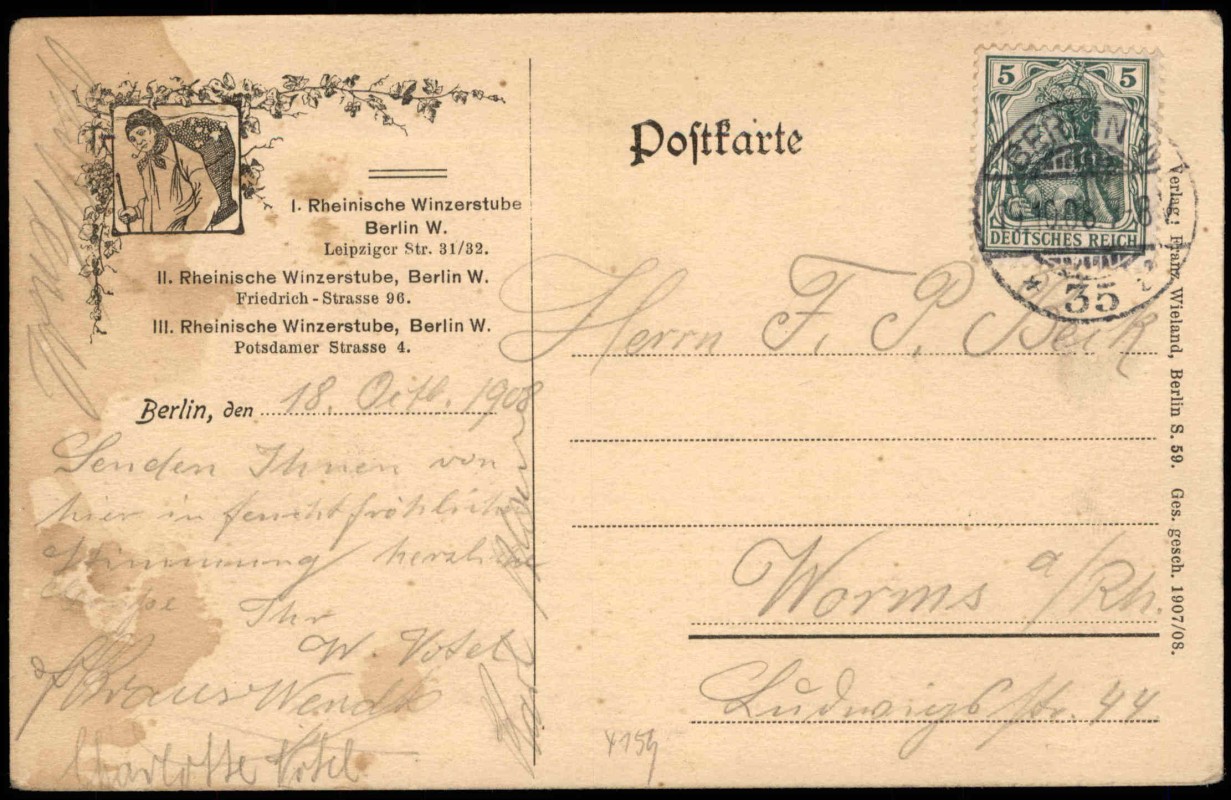 I. Rheinische Winzerstube
Berlin W.
Leipziger Str. 31/32.
II. Rheinische Winzerstube, Berlin W.
Friedrich-Strasse 96.
III. Rheinische Winzerstube, Berlin W.
Potsdamer Strasse 4.
Berlin, den 18. Octb. 1908
Senden Ihnen von
hier in feuchtfröhlicher
Stimmung herzliche
Ihr
W. Votel
Wendt
Charlotte Votel
Postkarte
5 5
DEUTSCHES REICH
BERLIN W.
10.08
* 35
Herrn F. P. Beck
Worms a/Rh.
Ludwigstr. 44
Verlag: Franz Wieland, Berlin S. 59. Ges. gesch. 1907/08.